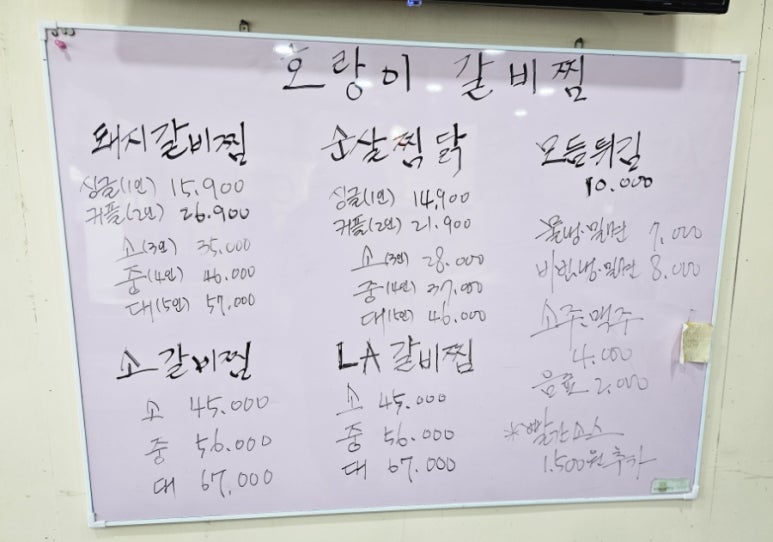 호랑이 갈비찜
돼지갈비찜
싱글(1인) 15,900
커플(2인) 26.900
소(3인) 35,000
중(4인) 46.000
대(5인) 57,000
순살찜닭
싱글(1인) 14,900
커플(2인) 21.900
소(3인) 28.000
중(4인) 37,000
대(5인) 46.000
모듬튀김
10.000
물냉·밀면 7.000
비빔냉·밀면 8.000
소주·맥주
4.000
음료 2,000
*빨간소스
1.500원 추가
소갈비찜
소 45.000
중 56.000
대 67,000
LA갈비찜
소 45.000
중 56.000
대 67.000